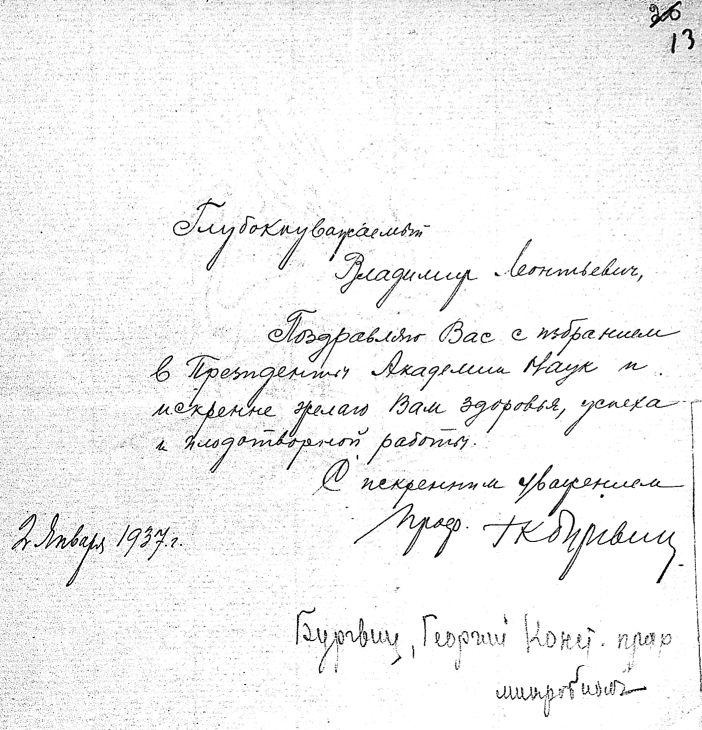 26
13
Глубокоуважаемый
Владимир Леонтьевич,
Поздравляю Вас с избранием
в Президенты Академии Наук и
искренне желаю Вам здоровья, успеха
и плодотворной работы.
С искренним уважением
Проф. ГКБургвиц.
2 Января 1937.г.
Бургвиц, Георгий Конст. проф
микробиолог